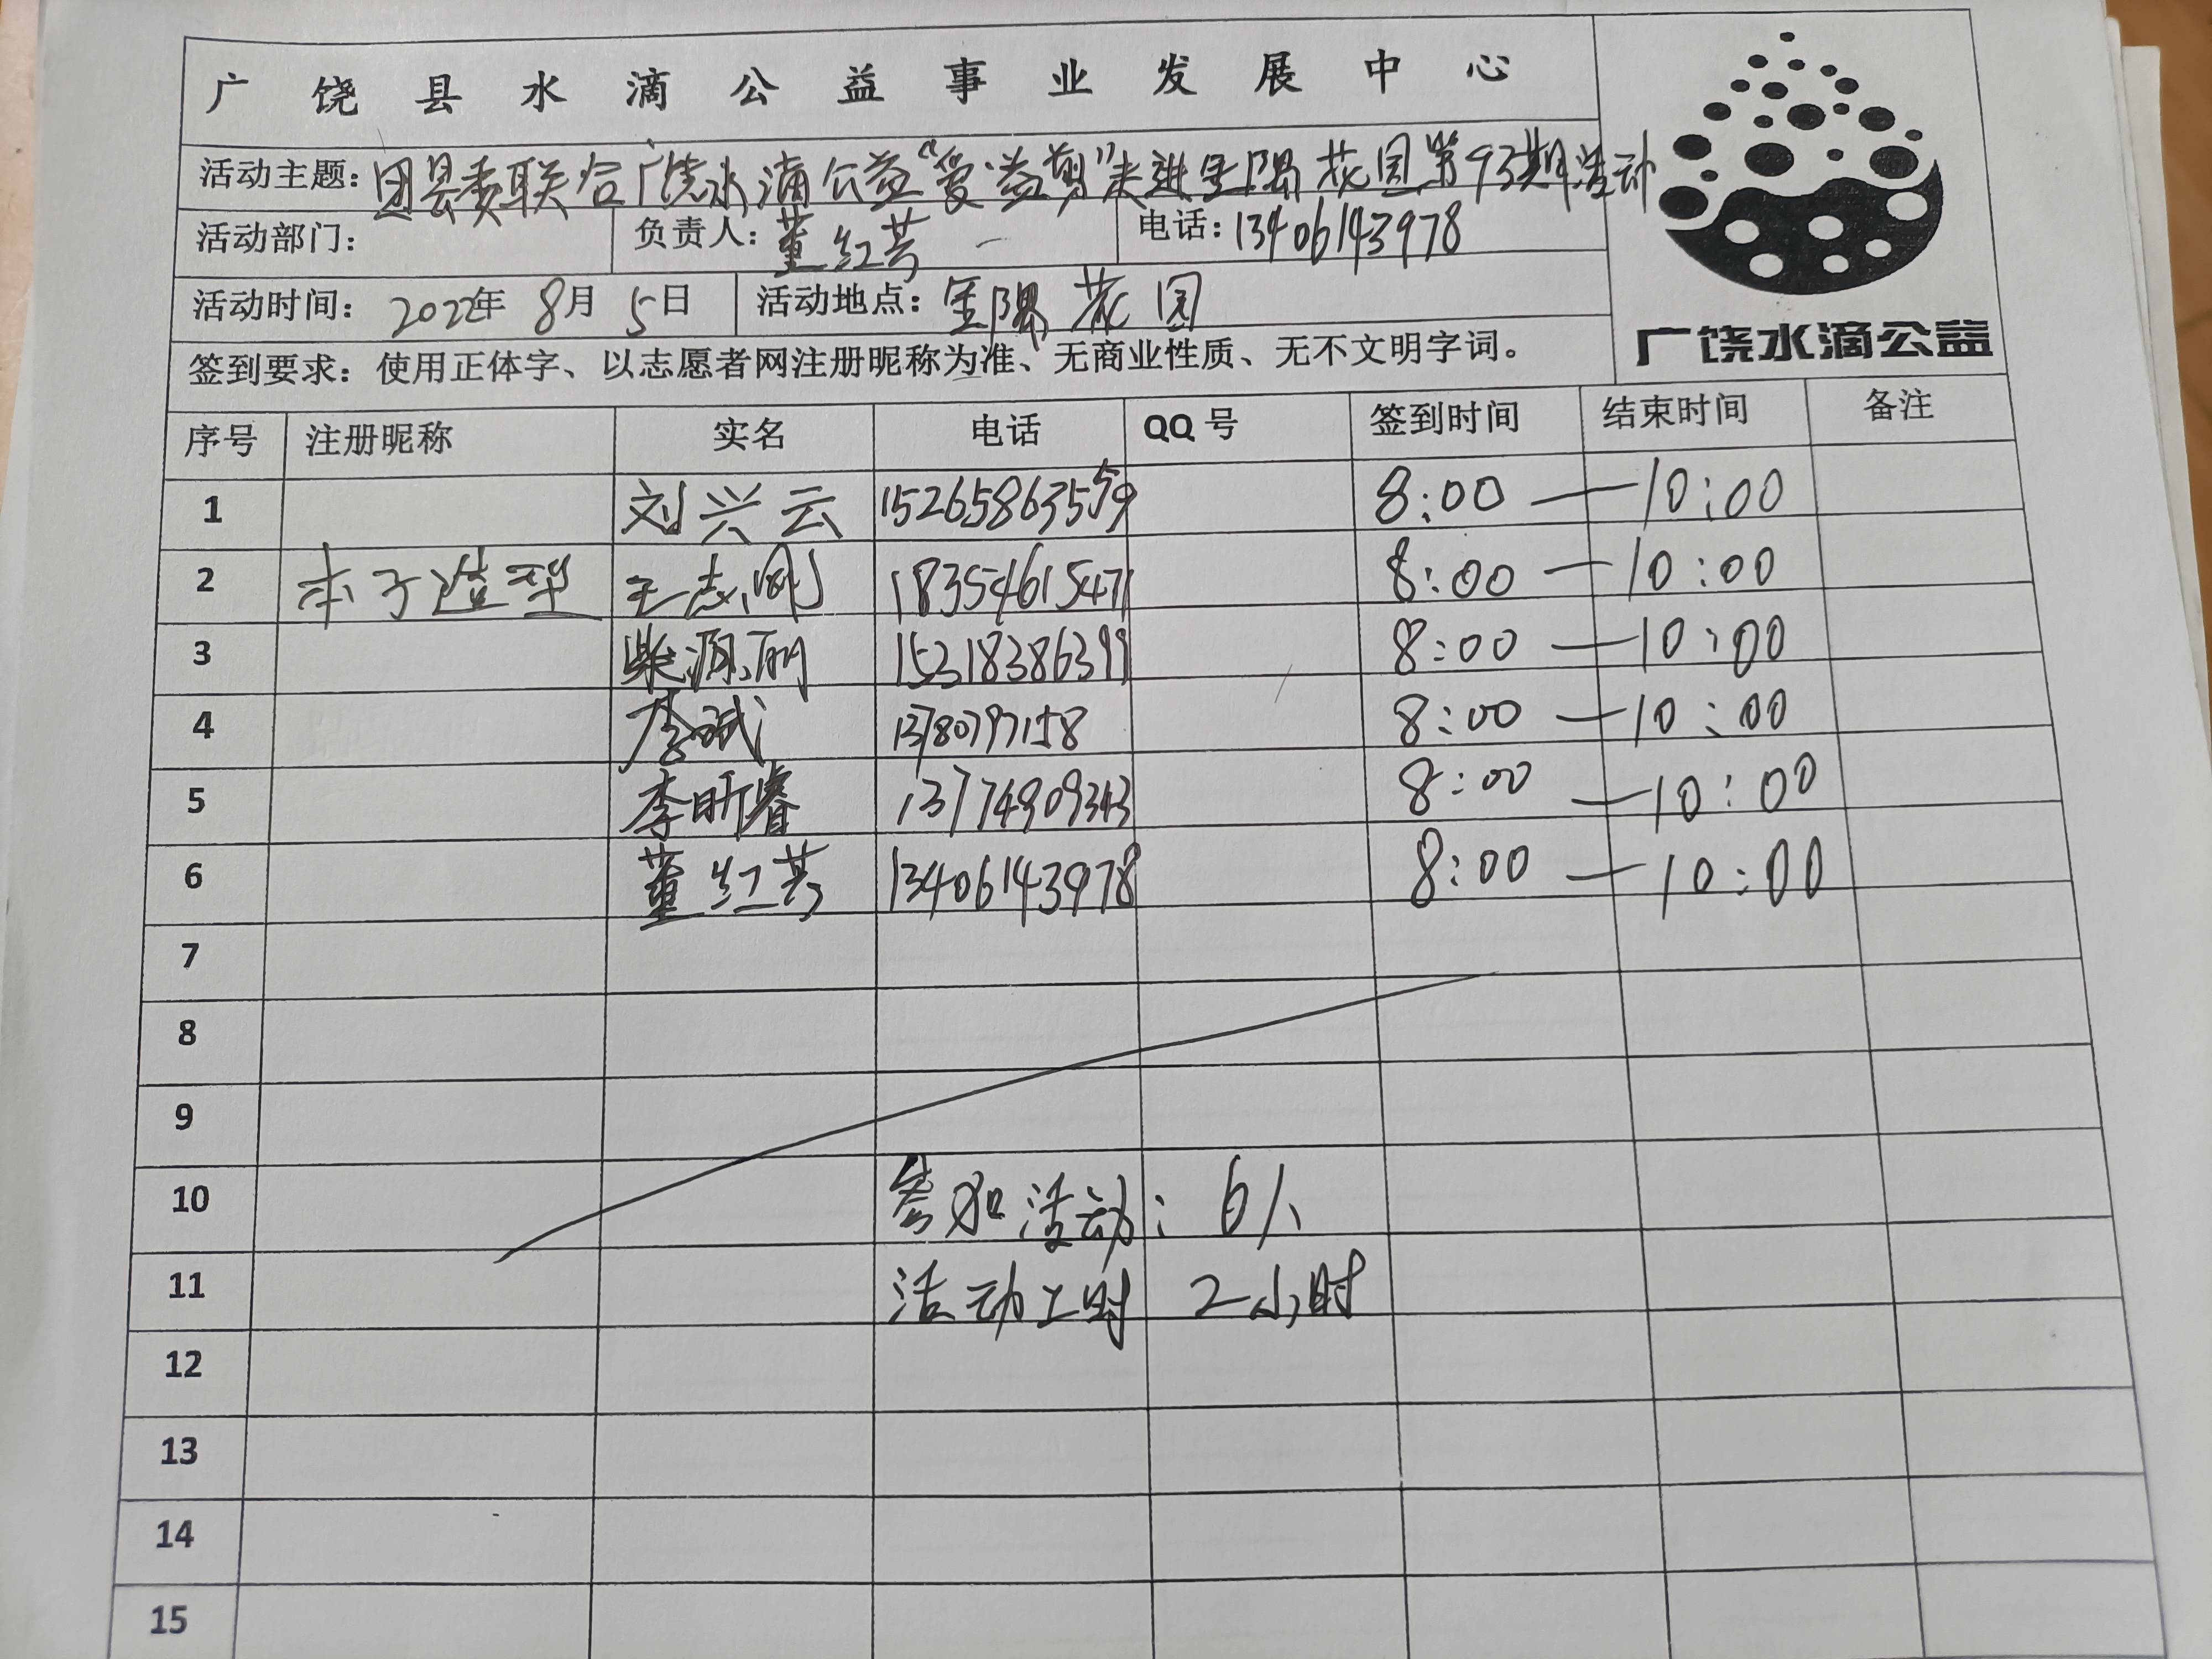 广饶县水滴公益事业发展中心
活动主题：团县委联合广饶水滴公益“爱益剪”走进金隅花园第93期活动
活动部门： 负责人：董红芸 电话：13406143978
活动时间：2022年 8月 5日 活动地点：金隅花园
广饶水滴公益
签到要求：使用正体字、以志愿者网注册昵称为准、无商业性质、无不文明字词。
序号 注册昵称 实名 电话 QQ号 签到时间 结束时间 备注
1 刘兴云 15265863559 8:00 — 10:00
2 本子造型 王志刚 18354615471 8:00 — 10:00
3 柴源丽 15218386399 8:00 — 10:00
4 李斌 8:00 — 10:00
5 李昕睿 8:00 — 10:00
6 董红芸 13406143978 8:00 — 10:00
7
8
9
10 参加活动：6人
11 活动工时 2小时
12
13
14
15